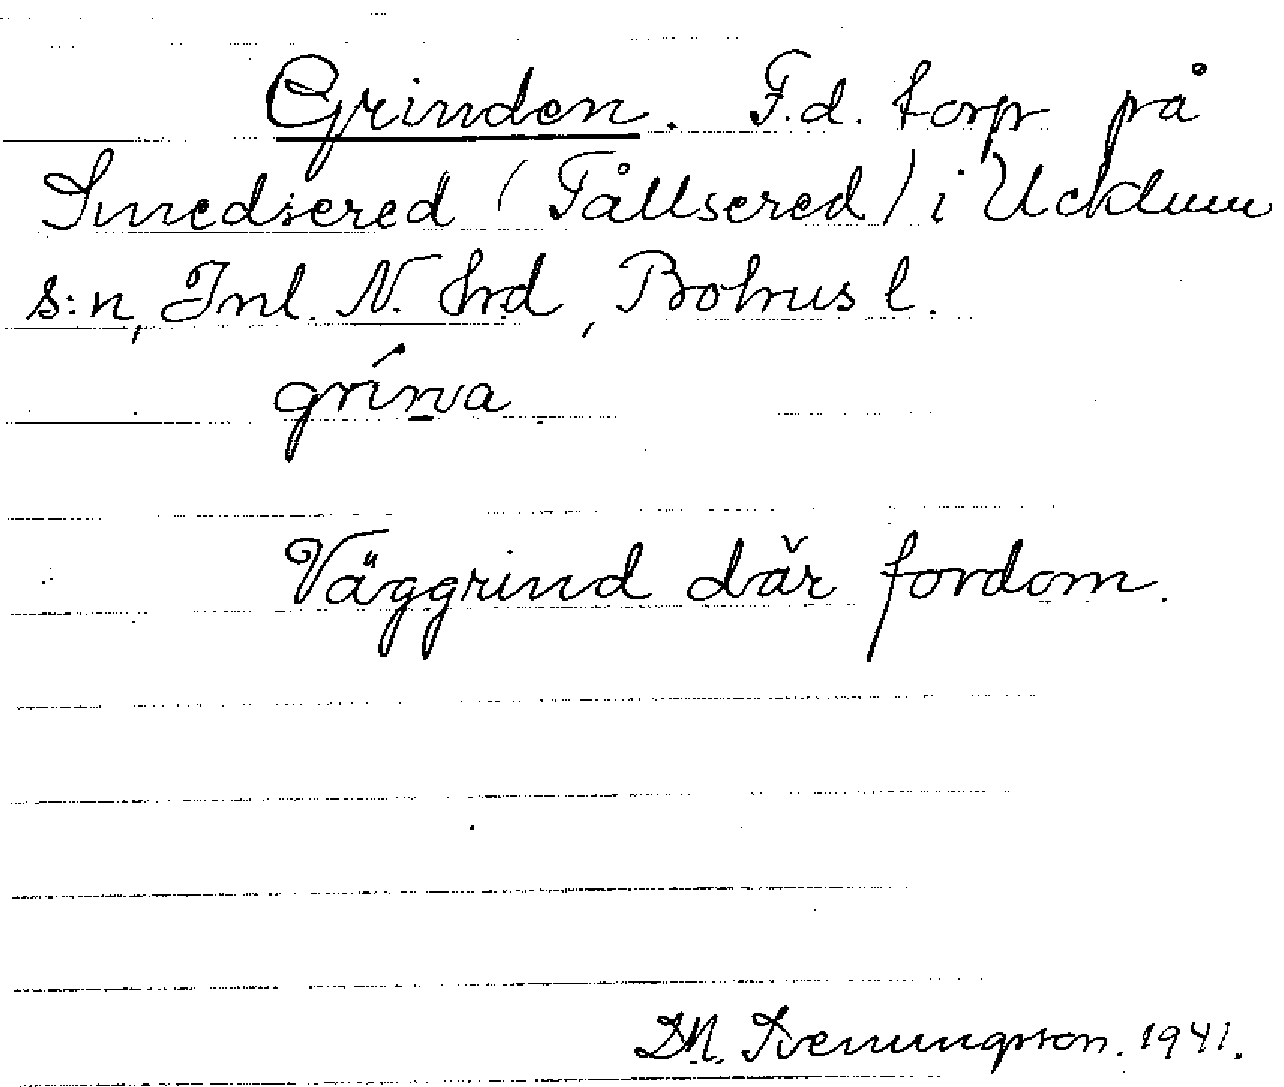 Grinden. F.d. torp på
Smedsered (Tållsered) i Ucklum
s:n, Inl. N. hrd, Bohus l.
Väggrind där fordom.
Svenungsson. 1941.